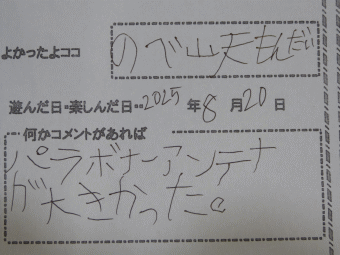 よかったよココ のべ山天もんだい
遊んだ日・楽しんだ日・・2025年8月20日
何かコメントがあれば
パラボナーアンテナ
が大きかった。